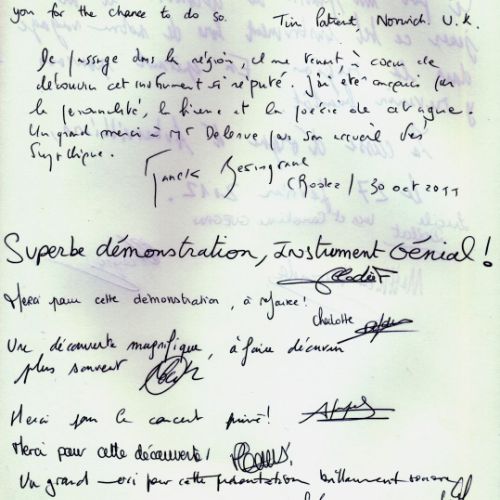 you for the chance to do so. Tim Patient, Norwich. U.K.
De passage dans la région, il me tenait à coeur de
découvrir cet instrument si réputé. j'ai été conquis par
la personalité, la finesse et la poésie de cet orgue.
Un grand merci à Mr Deleruе pour son accueil très
Sympathique.
(Rodez) / 30 oct 2011
Superbe démonstration, Instrument Génial!
Merci pour cette démonstration, à Marie!
Charlotte
Une découverte magnifique, à faire découvrir
plus souvent
Merci pour le concert privé!
Merci pour cette découverte!
Un grand merci pour cette présentation brillamment sonore